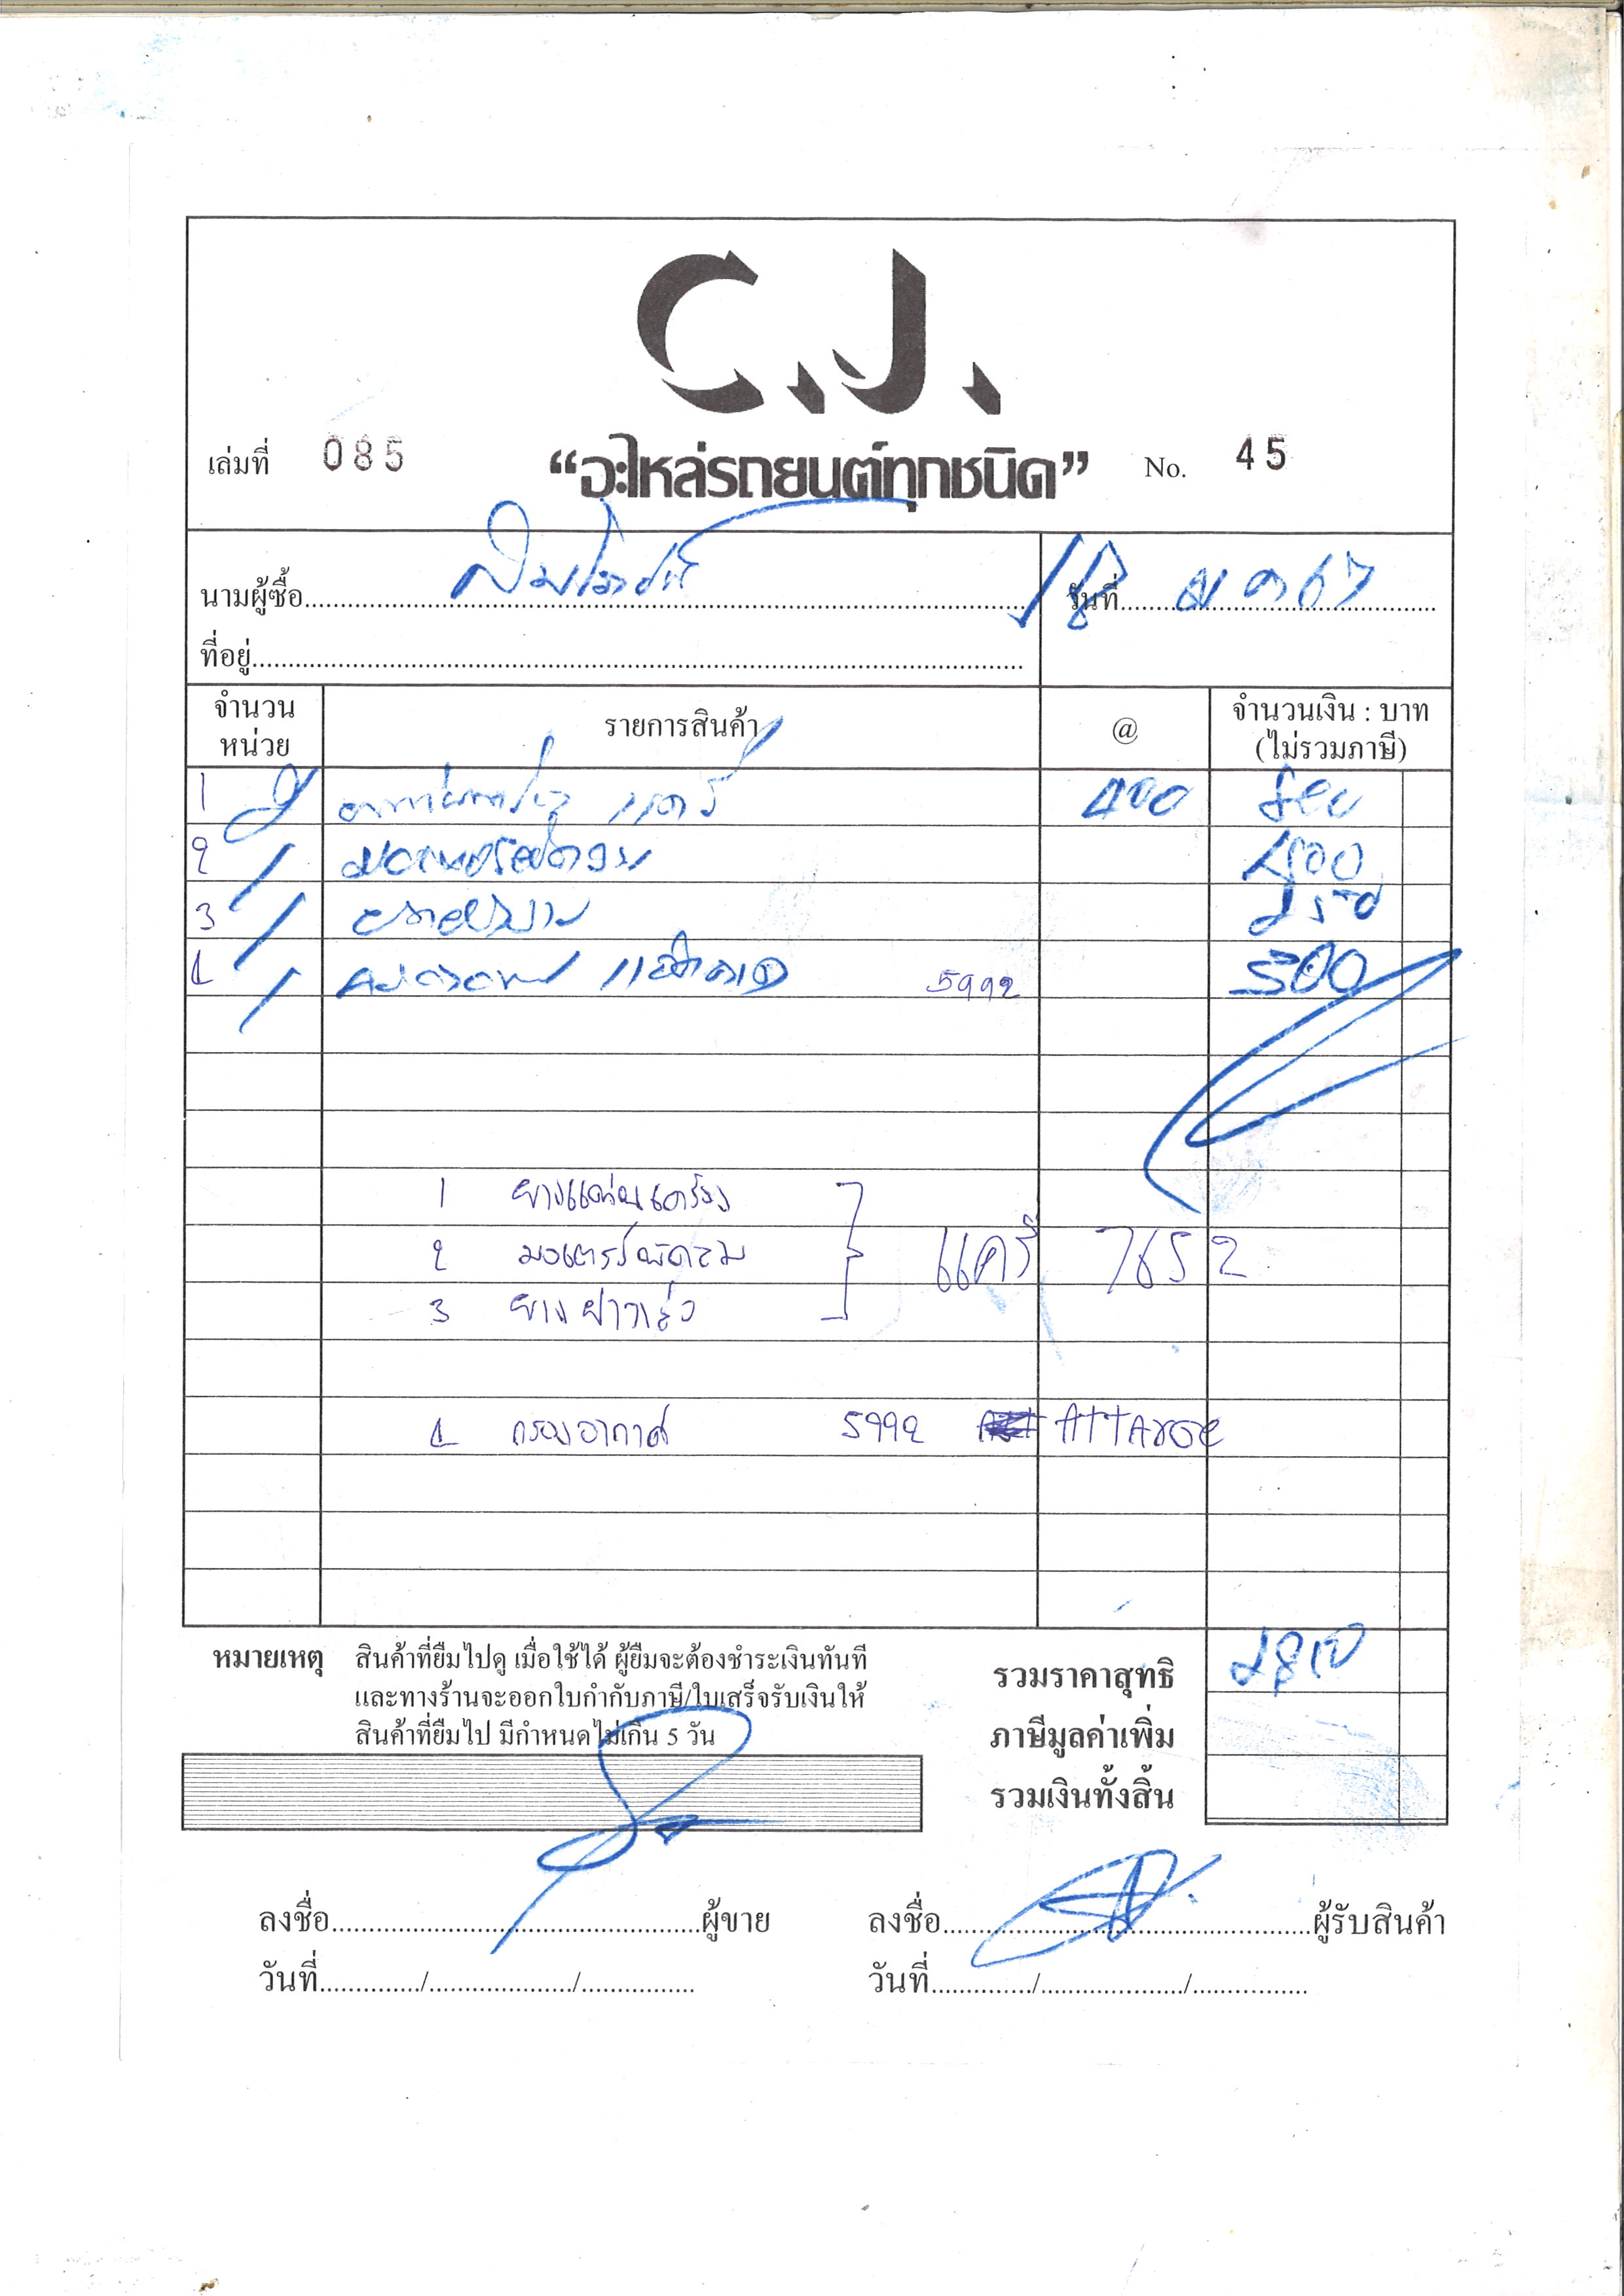 C.J.
เล่มที่ 085 “อะไหล่รถยนต์ทุกชนิด” No. 45
นามผู้ซื้อ
วันที่ ม ค 67
ที่อยู่
จำนวน
หน่วย
รายการสินค้า
@
จำนวนเงิน : บาท
(ไม่รวมภาษี)
1 2 แครี่ 400 800
2 1 มอเตอร์พัดลม
3 1
4 1 5992 500
1 ยางแท่นเครื่อง
2 มอเตอร์พัดลม แครี่ 7652
3 ยางฝาวาล์ว
4 กรองอากาศ 5992 ATTARGE
หมายเหตุ สินค้าที่ยืมไปดู เมื่อใช้ได้ ผู้ยืมจะต้องชำระเงินทันที
และทางร้านจะออกใบกำกับภาษี/ใบเสร็จรับเงินให้
สินค้าที่ยืมไป มีกำหนดไม่เกิน 5 วัน
รวมราคาสุทธิ
ภาษีมูลค่าเพิ่ม
รวมเงินทั้งสิ้น
ลงชื่อ ผู้ขาย ลงชื่อ ผู้รับสินค้า
วันที่ / / วันที่ / /